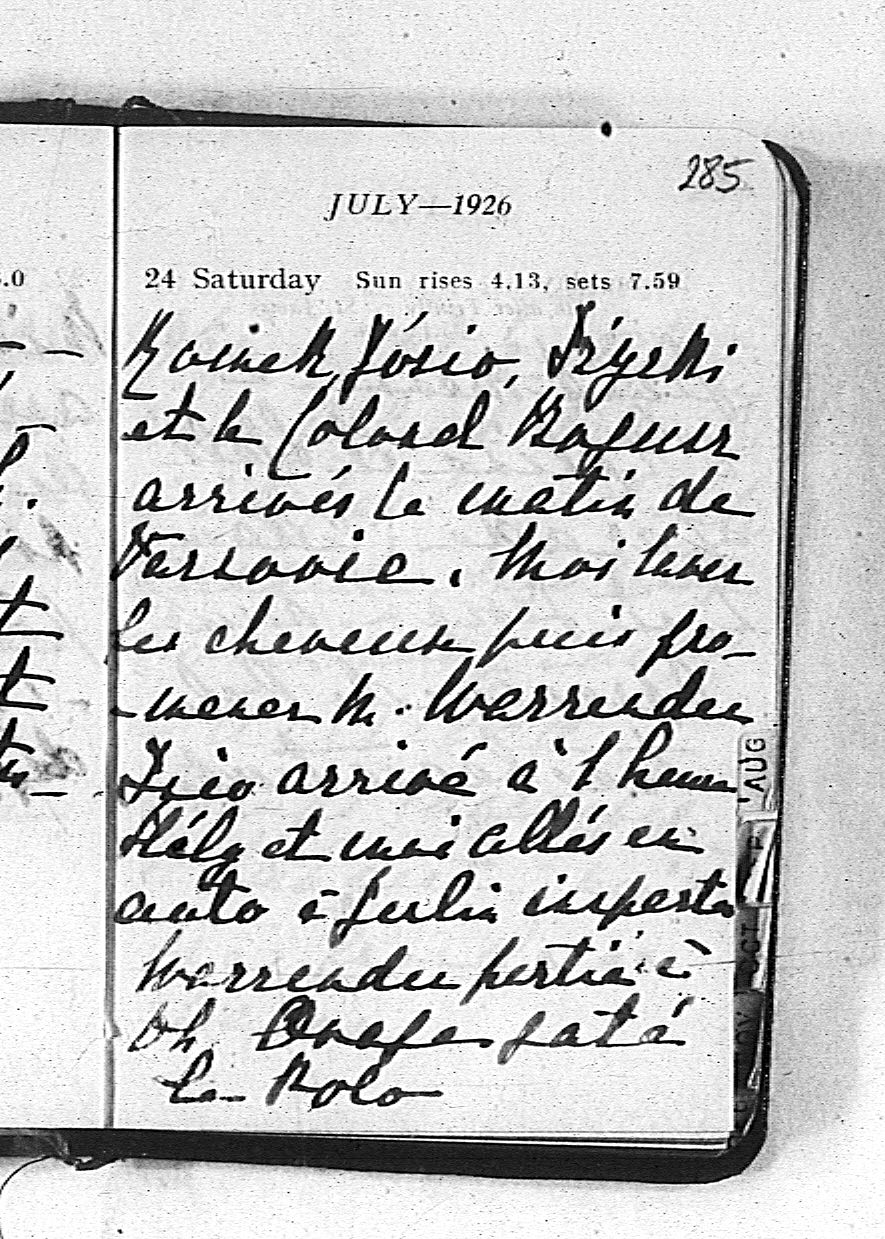 285
JULY—1926
24 Saturday Sun rises 4.13, sets 7.59
Józio,
et le Colonel
arrivés le matin de
Varsovie. Moi laver
les cheveux puis pro-
-mener M. Warrender
arrivé à 1 heure
et moi allés en
auto à Julin inspecter
Warrender partie à
6h. Orage gâté
le Polo
AUG
OCT